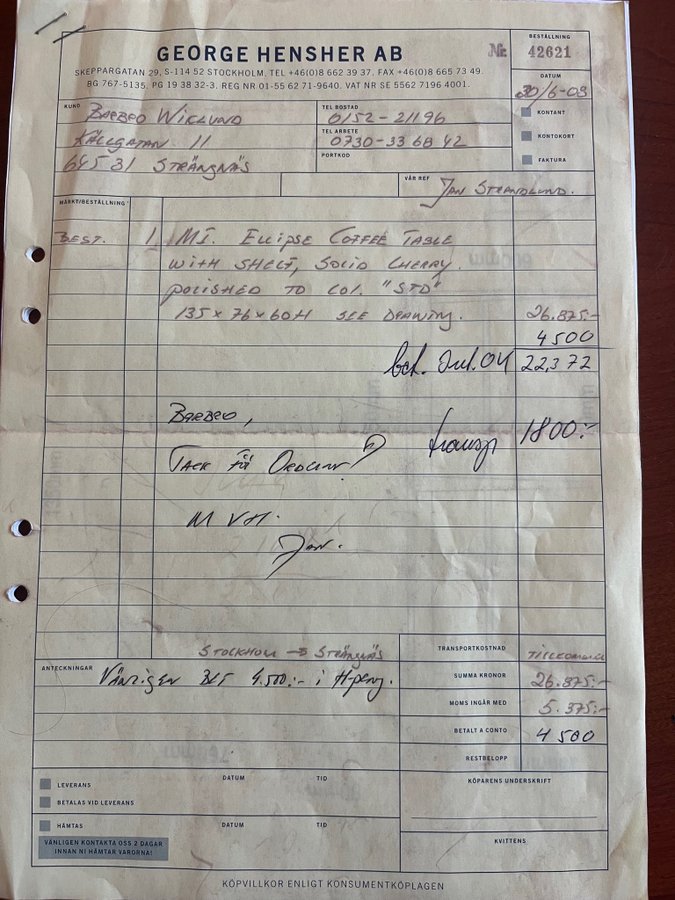 GEORGE HENSHER AB
SKEPPARGATAN 29, S-114 52 STOCKHOLM, TEL +46(0)8 662 39 37, FAX +46(0)8 665 73 49.
BG 767-5135, PG 19 38 32-3. REG NR 01-55 62 71-9640. VAT NR SE 5562 7196 4001.
Nr
BESTÄLLNING
42621
DATUM
30/6-03
KONTANT
KONTOKORT
FAKTURA
KUND
BARBRO WIKLUND
KÄLLGATAN 11
645 31 STRÄNGNÄS
TEL BOSTAD
0152-21196
TEL ARBETE
0730-33 68 42
PORTKOD
VÅR REF
JAN STRANDLUND.
MÄRKT/BESTÄLLNING
BEST. 1 MJ. ELLIPSE COFFEE TABLE
WITH SHELF, SOLID CHERRY.
POLISHED TO COL. "STD"
135 x 76 x 60H SEE DRAWING. 26.875:-
4500
bet. Jul. 04 22,372
BARBRO,
transp 1800:-
TACK FÖ ORDERN!
M VH.
JAN.
STOCKHOLM → STRÄNGNÄS
TRANSPORTKOSTNAD TILLKOMMER
SUMMA KRONOR 26.875:-
MOMS INGÅR MED 5.375:-
BETALT A CONTO 4500
RESTBELOPP
ANTECKNINGAR
VÄNLIGEN BET 4.500:- i H-peng.
LEVERANS DATUM TID
BETALAS VID LEVERANS
HÄMTAS DATUM TID
VÄNLIGEN KONTAKTA OSS 2 DAGAR
INNAN NI HÄMTAR VARORNA!
KÖPARENS UNDERSKRIFT
KVITTENS
KÖPVILLKOR ENLIGT KONSUMENTKÖPLAGEN